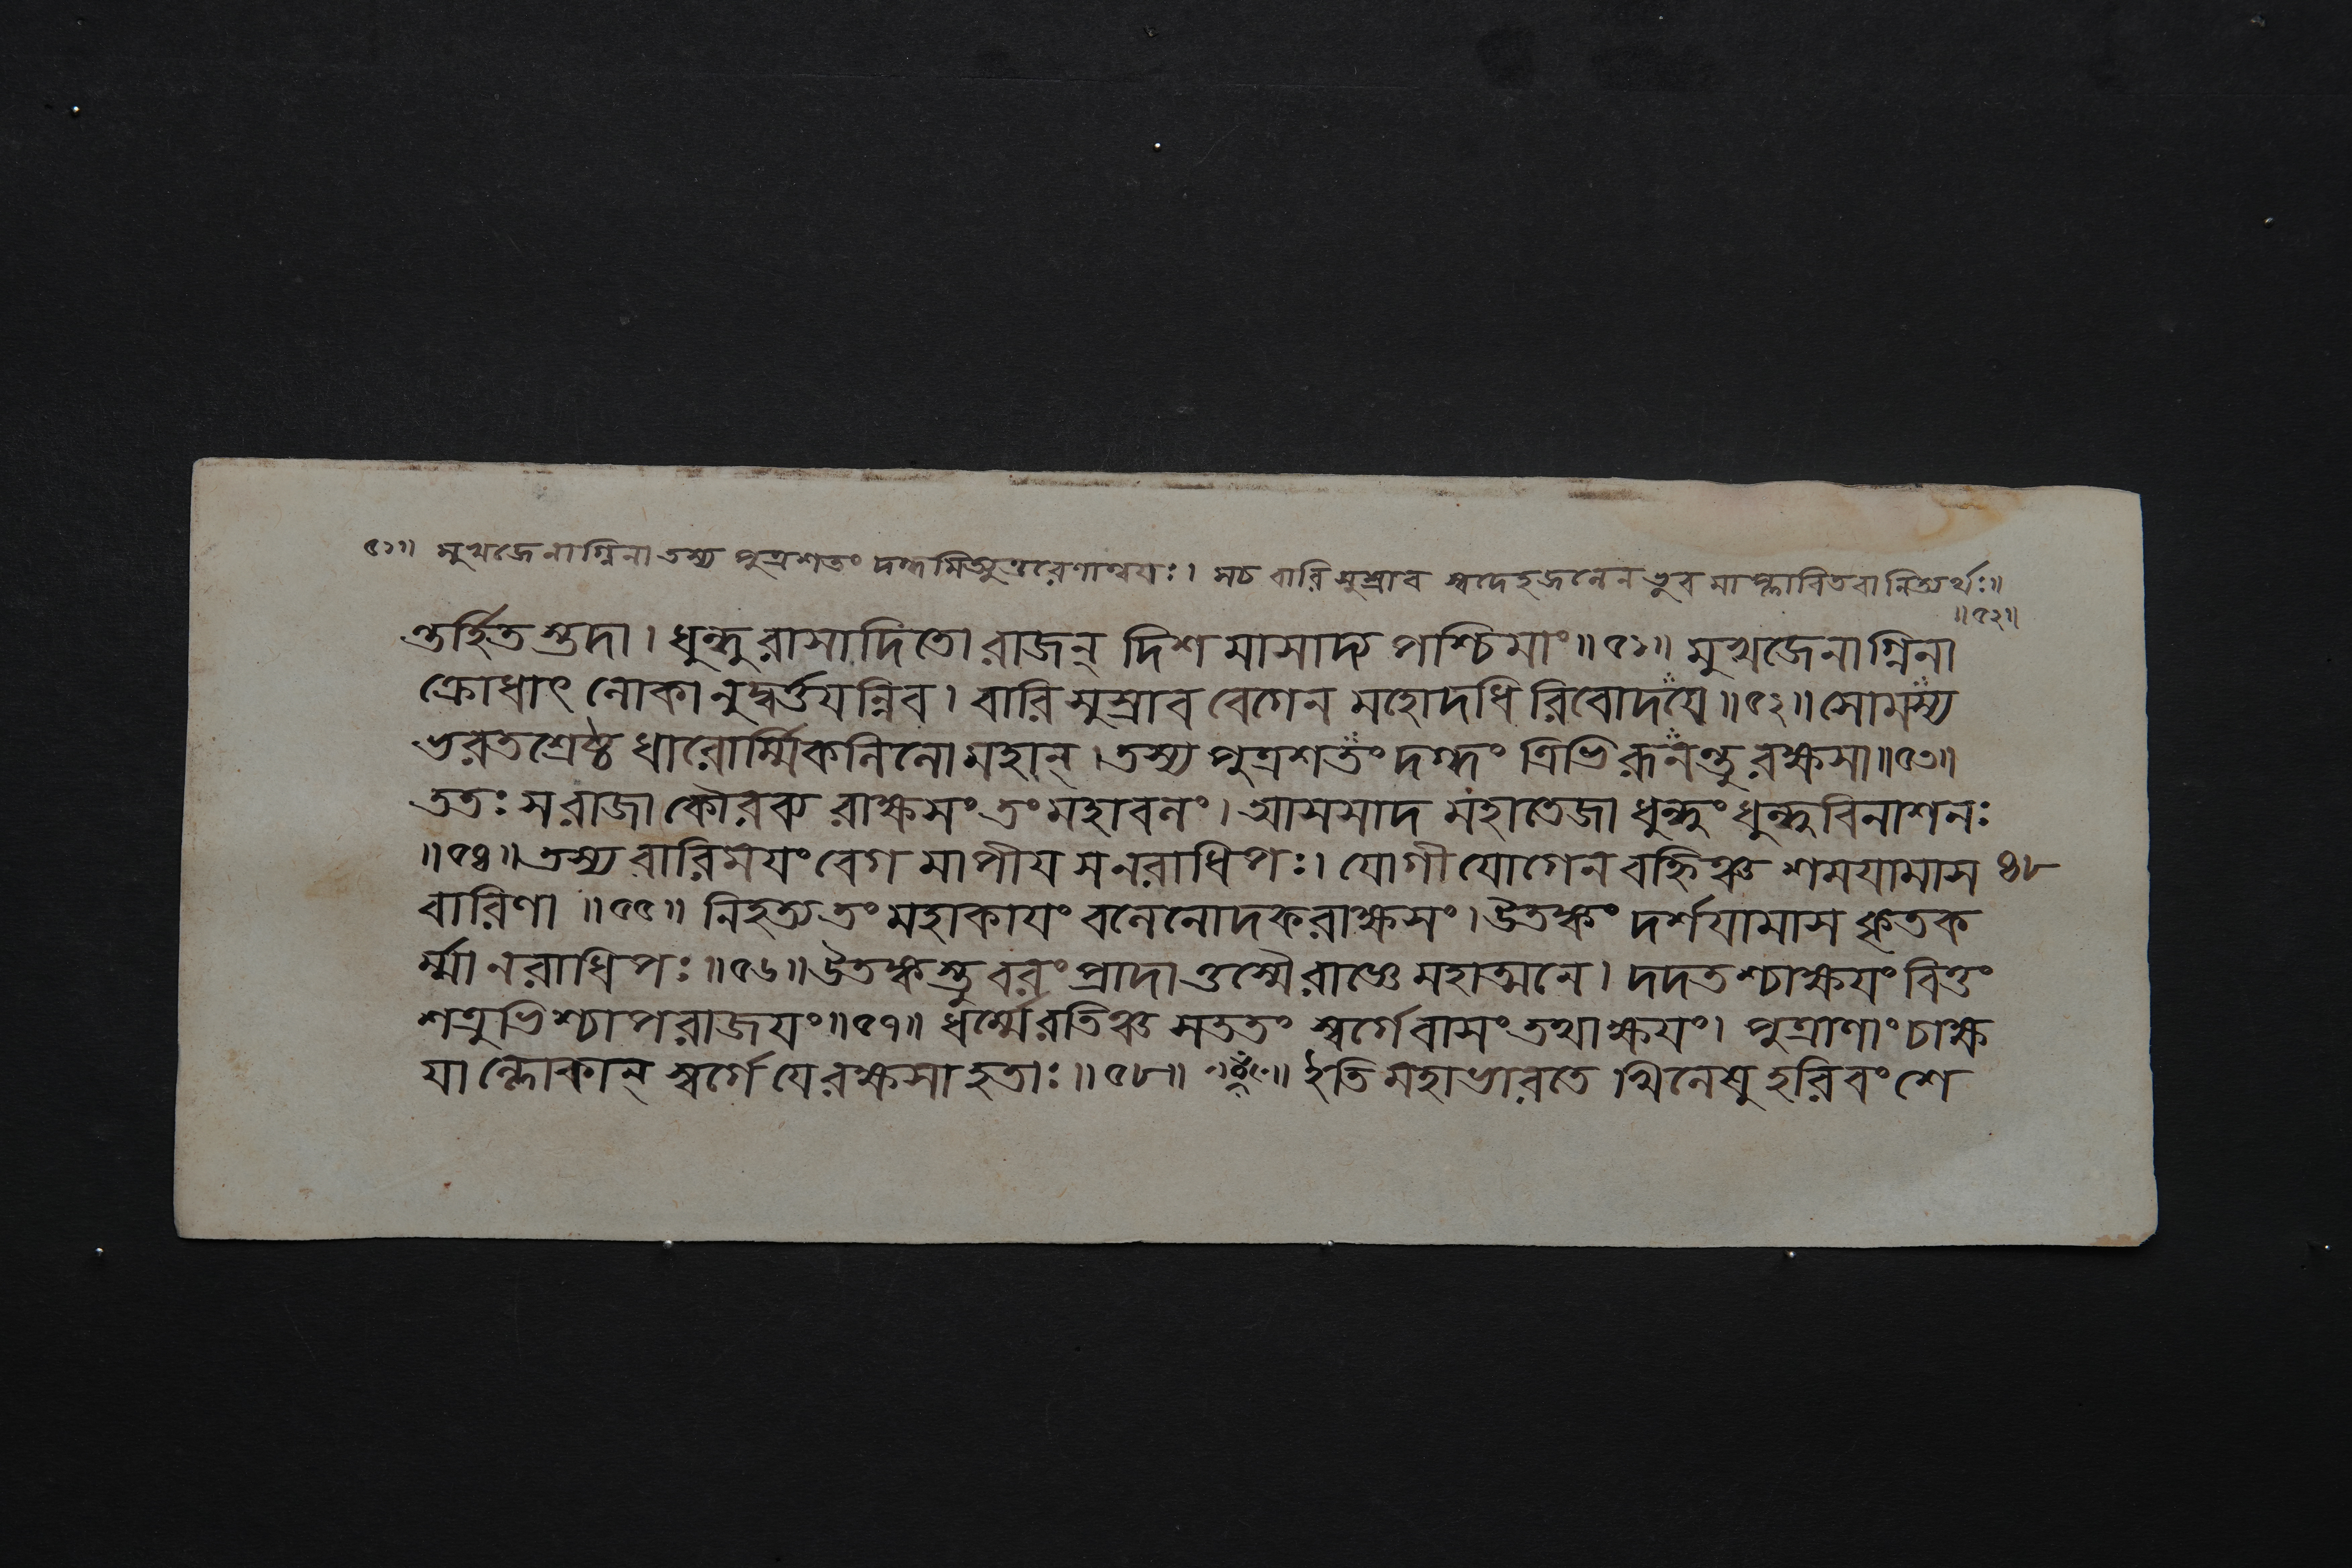 ৫১॥ মুখজেনাগ্নিনা তস্য পুত্রশতং দগ্ধমিত্যুত্তরেণান্বয়ঃ। স চ বারি সুস্রাব স্বদেহজলেন ভুবমাপ্লাবিতবানিত্যর্থঃ॥
॥৫২॥
ন্তর্হিতস্তদা। ধুন্ধুরাসাদিতো রাজন্ দিশমাসাদ্য পশ্চিমাং॥৫১॥ মুখজেনাগ্নিনা
ক্রোধাৎ লোকানুদ্বর্ত্তয়ন্নিব। বারি সুস্রাব বেগেন মহোদধিরিবোদয়ে॥৫২॥ সোমস্য
ভরতশ্রেষ্ঠ ধারোর্ম্মিকলিলো মহান্। তস্য পুত্রশতং দগ্ধং ত্রিভিরূনন্তু রক্ষসা॥৫৩॥
ততঃ স রাজা কৌরব্য রাক্ষসং তং মহাবলং। আসসাদ মহাতেজা ধুন্ধুং ধুন্ধুবিনাশনঃ
॥৫৪॥ তস্য বারিময়ং বেগমাপীয় স নরাধিপঃ। যোগী যোগেন বহ্নিঞ্চ শময়ামাস ৪৮
বারিণা ॥৫৫॥ নিহত্য তং মহাকায়ং বলেনোদকরাক্ষসং। উতঙ্কং দর্শয়ামাস কৃতক
র্ম্মা নরাধিপঃ॥৫৬॥ উতঙ্কস্তু বরং প্রাদাত্তস্মৈ রাজ্ঞে মহাত্মনে। দদতশ্চাক্ষয়ং বিত্তং
শত্রুভিশ্চাপরাজয়ং॥৫৭॥ ধর্ম্মে রতিঞ্চ সততং স্বর্গে বাসং তথাক্ষয়ং। পুত্রাণাং চাক্ষ
যাল্লোকান্ স্বর্গে যে রক্ষসা হতাঃ॥৫৮॥ ॥ ইতি মহাভারতে খিলেষু হরিবংশে